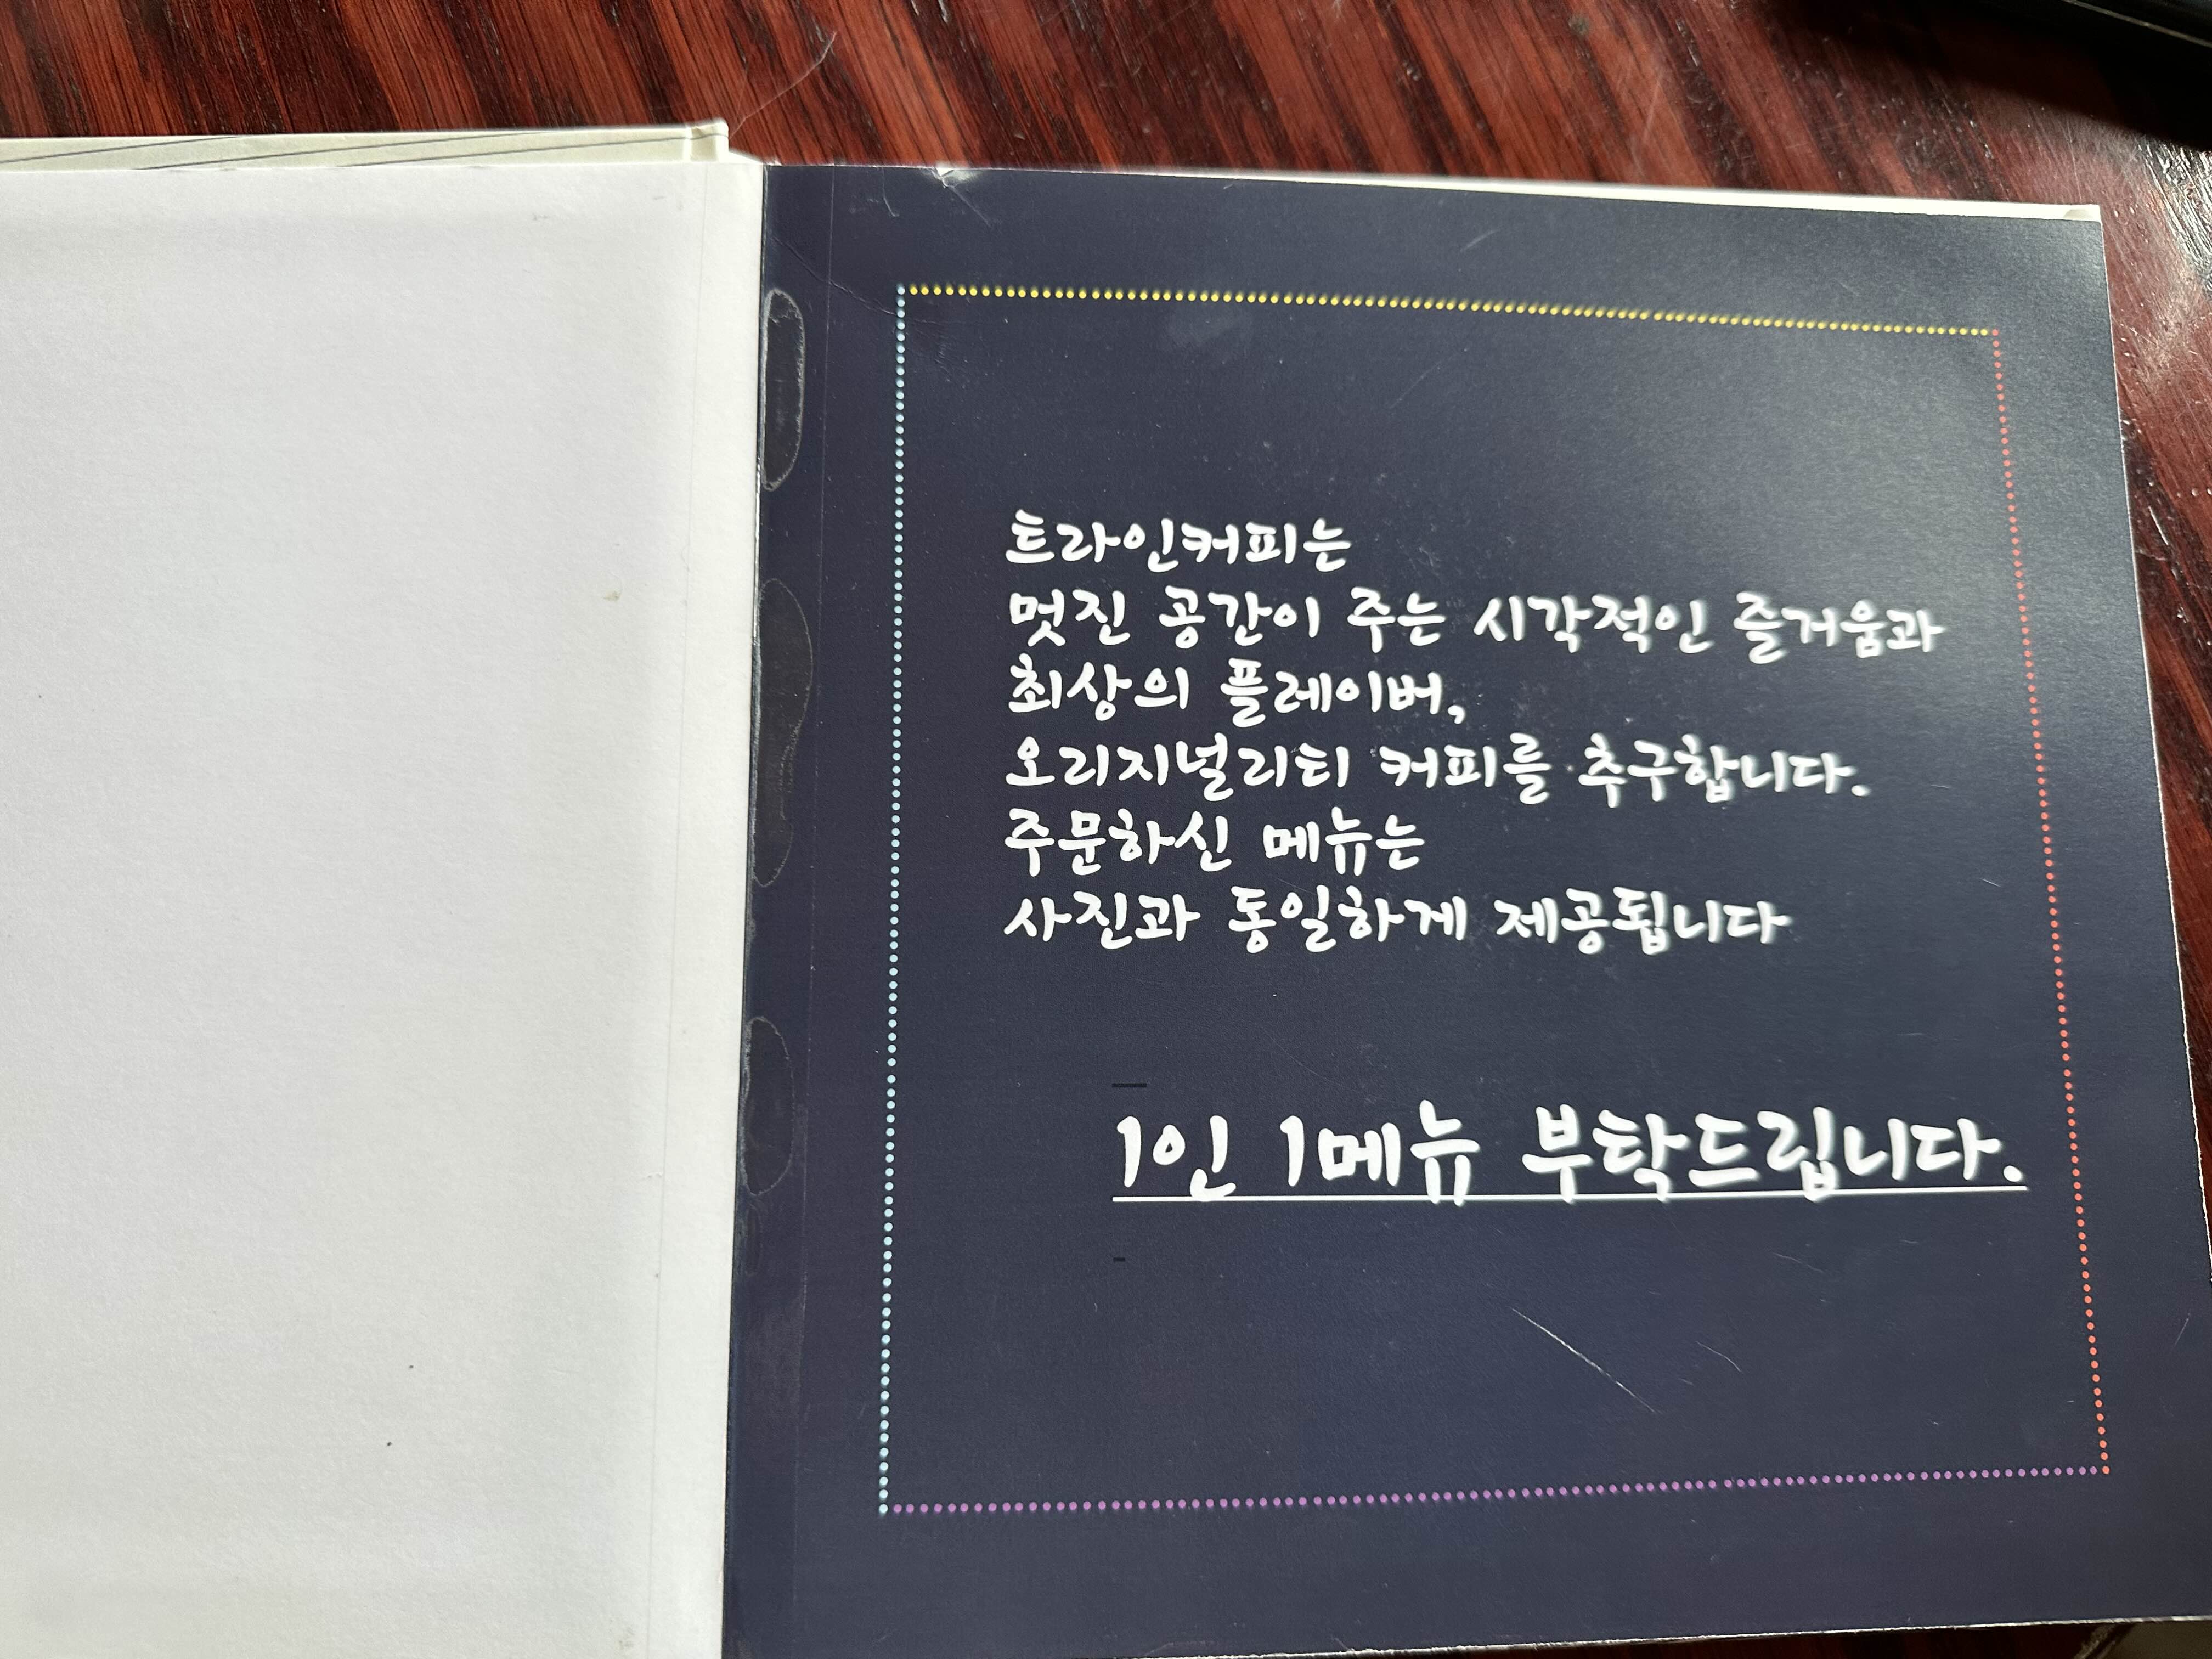 트라인커피는
멋진 공간이 주는 시각적인 즐거움과
최상의 플레이버,
오리지널리티 커피를 추구합니다.
주문하신 메뉴는
사진과 동일하게 제공됩니다
1인 1메뉴 부탁드립니다.